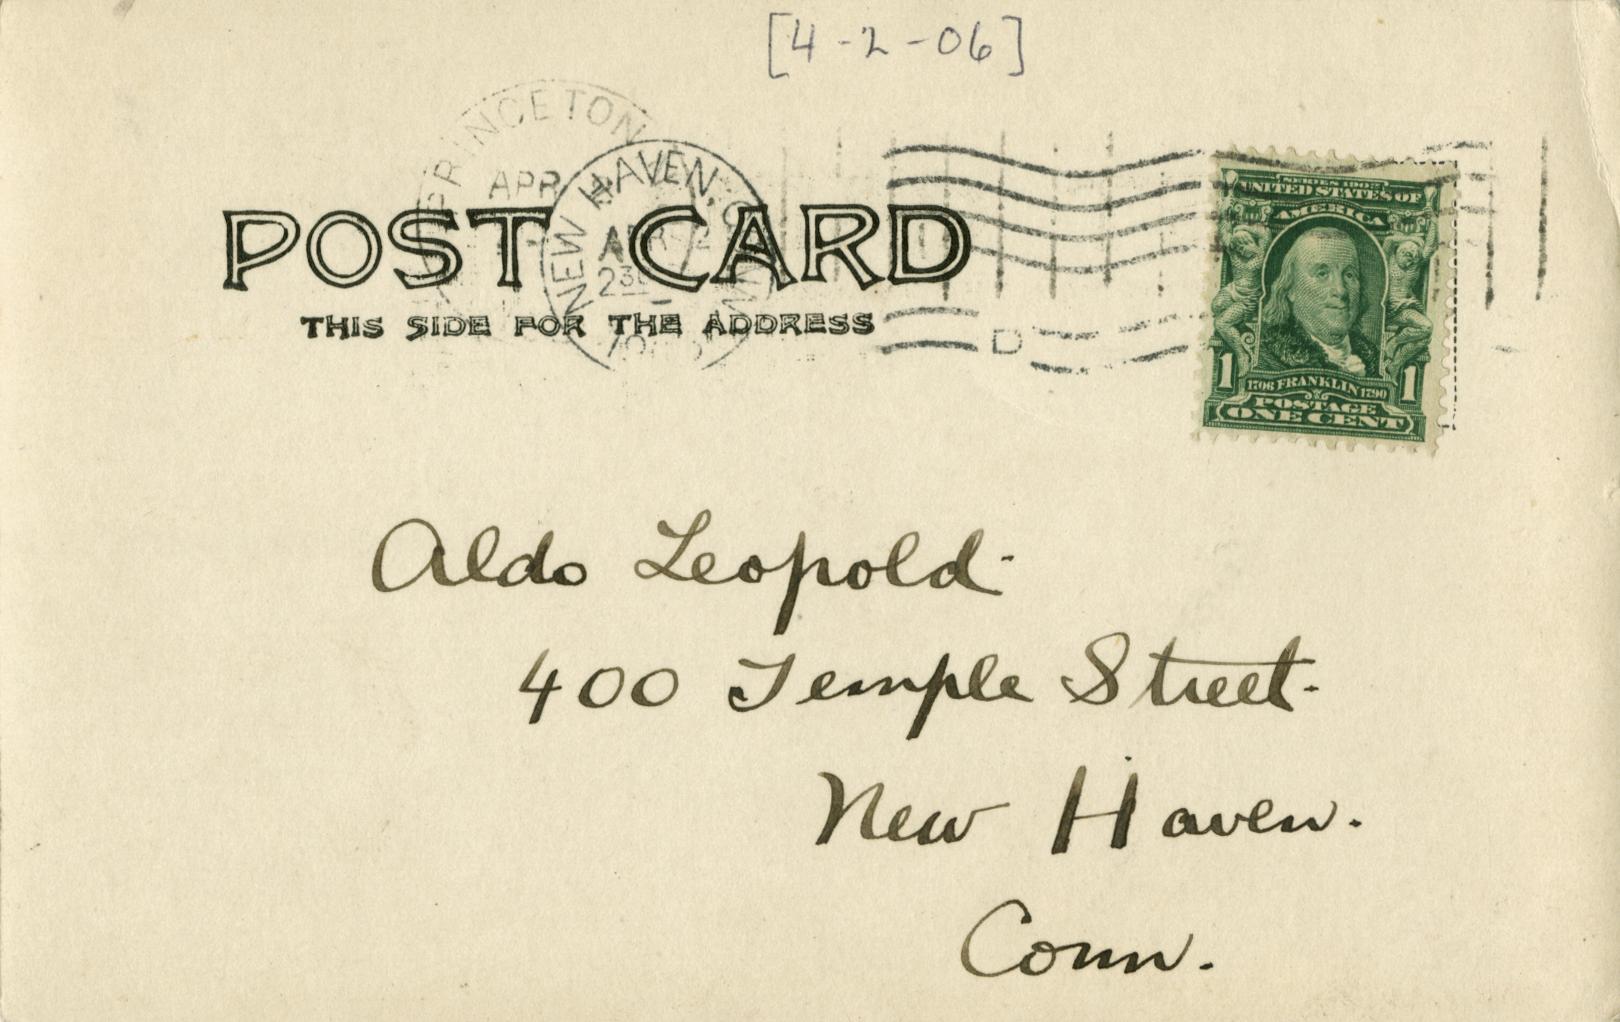 [4-2-06]
PRINCETON
APR
NEW HAVEN, 
APR 2
POST CARD
THIS SIDE FOR THE ADDRESS
D
SERIES 1902
UNITED STATES OF
AMERICA
1 1
1706 FRANKLIN 1790
POSTAGE
ONE CENT
Aldo Leopold-
400 Temple Street.
New Haven.
Conn.